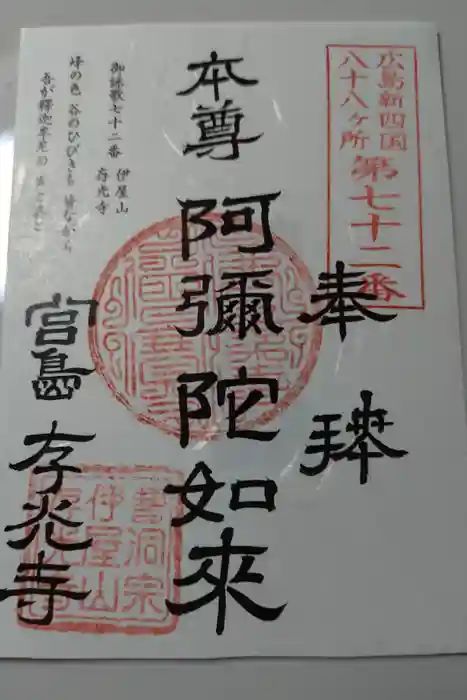 広島新四国
八十八ヶ所 第七十二番
奉拝
本尊 阿彌陀如來
御詠歌七十二番 伊屋山
存光寺
峰の色 谷のひびきも 皆ながら
吾が釋迦牟尼の
宮島 存光寺
曹洞宗
伊屋山
存光寺